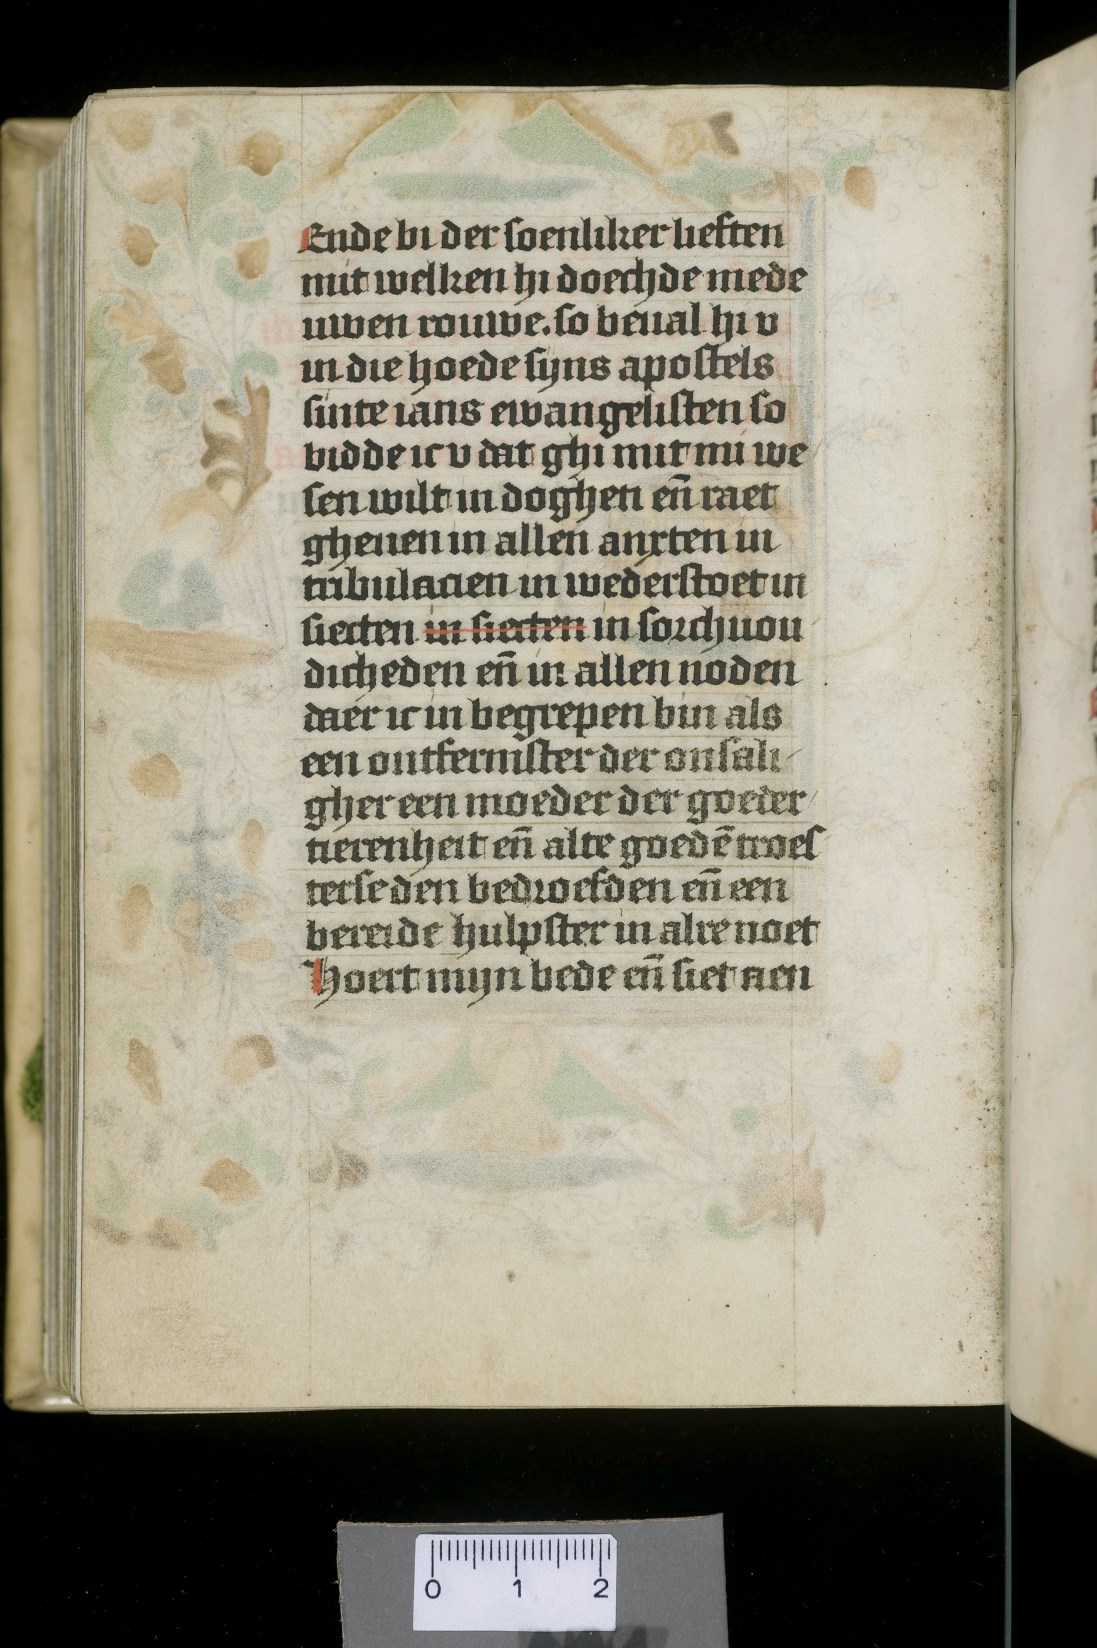 Ende bi der soenliker lieften
mit welken hi doechde mede
uwen rouwe. so beual hi v
in die hoede syns apostels
sinte ians ewangelisten so
bidde ic v dat ghi mit mi we
sen wilt in doghen en̄ raet
gheuen in allen anxten in
tribulacien in wederstoet in
siecten in siecten in sorchuou
dicheden en̄ in allen noden
daer ic in begrepen bin als
een ontfermster der onsali
gher een moeder der goeder
tierenheit en̄ alte goedē troes
terse den bedroefden en̄ een
bereide hulpster in alre noet
Hoert mijn bede en̄ siet aen
0 1 2